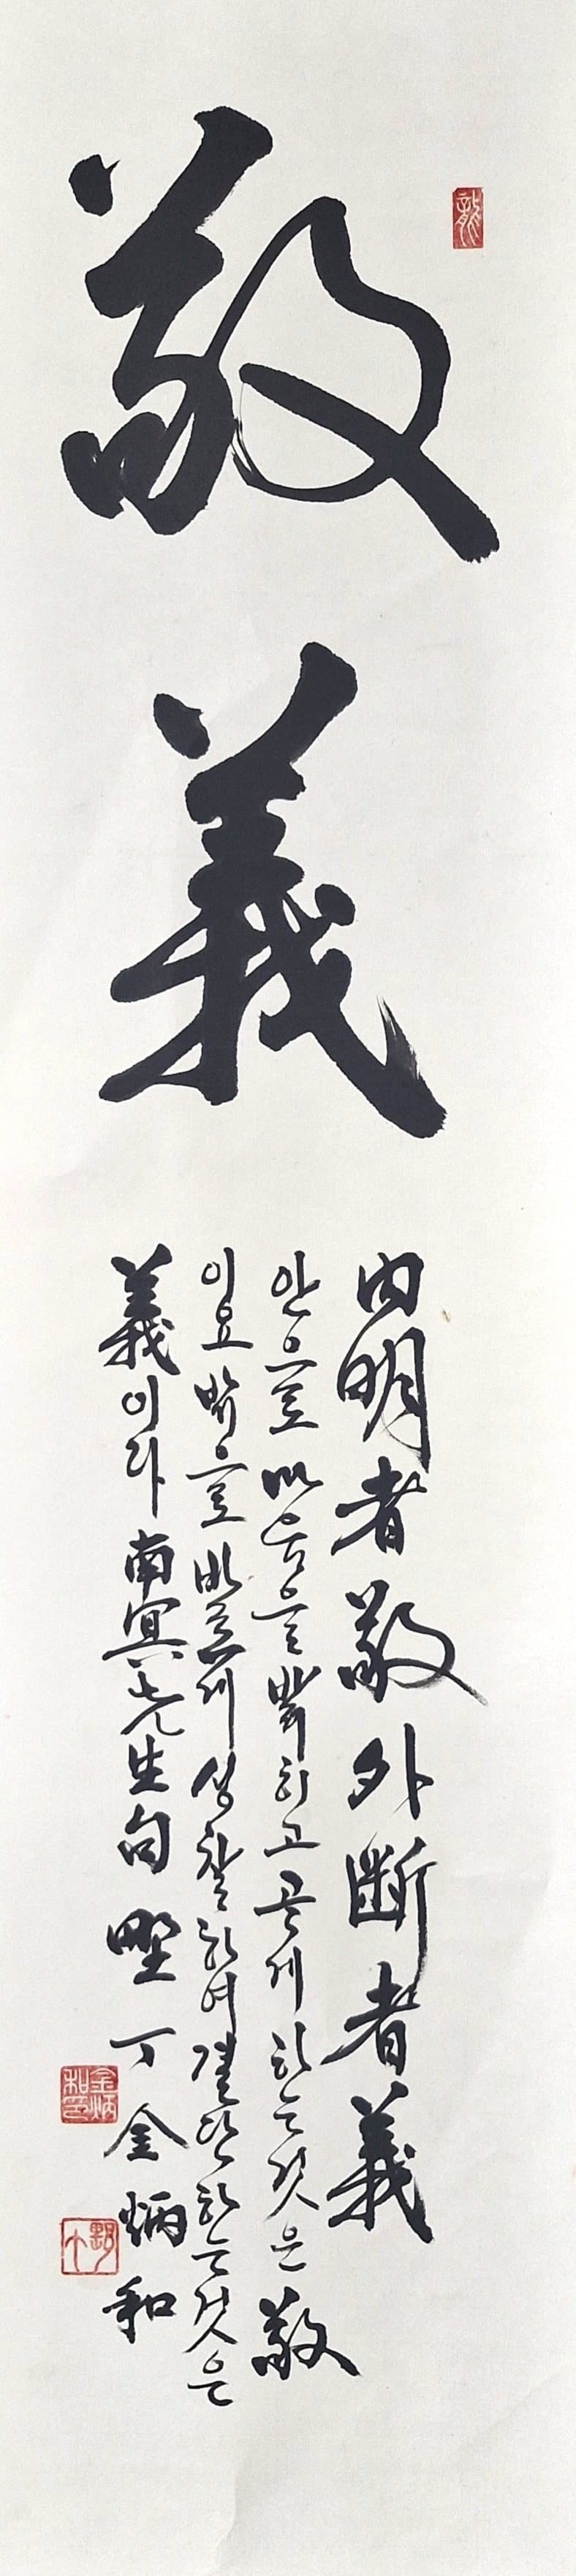 敬
義
內明者敬外斷者義
안으로 마음을 밝히고 곧게 하는 것은 敬
이요 밖으로 바르게 성찰하여 결단하는 것은
義이라 南冥先生句 野丁 金炳和
龍
金炳和印
野丁